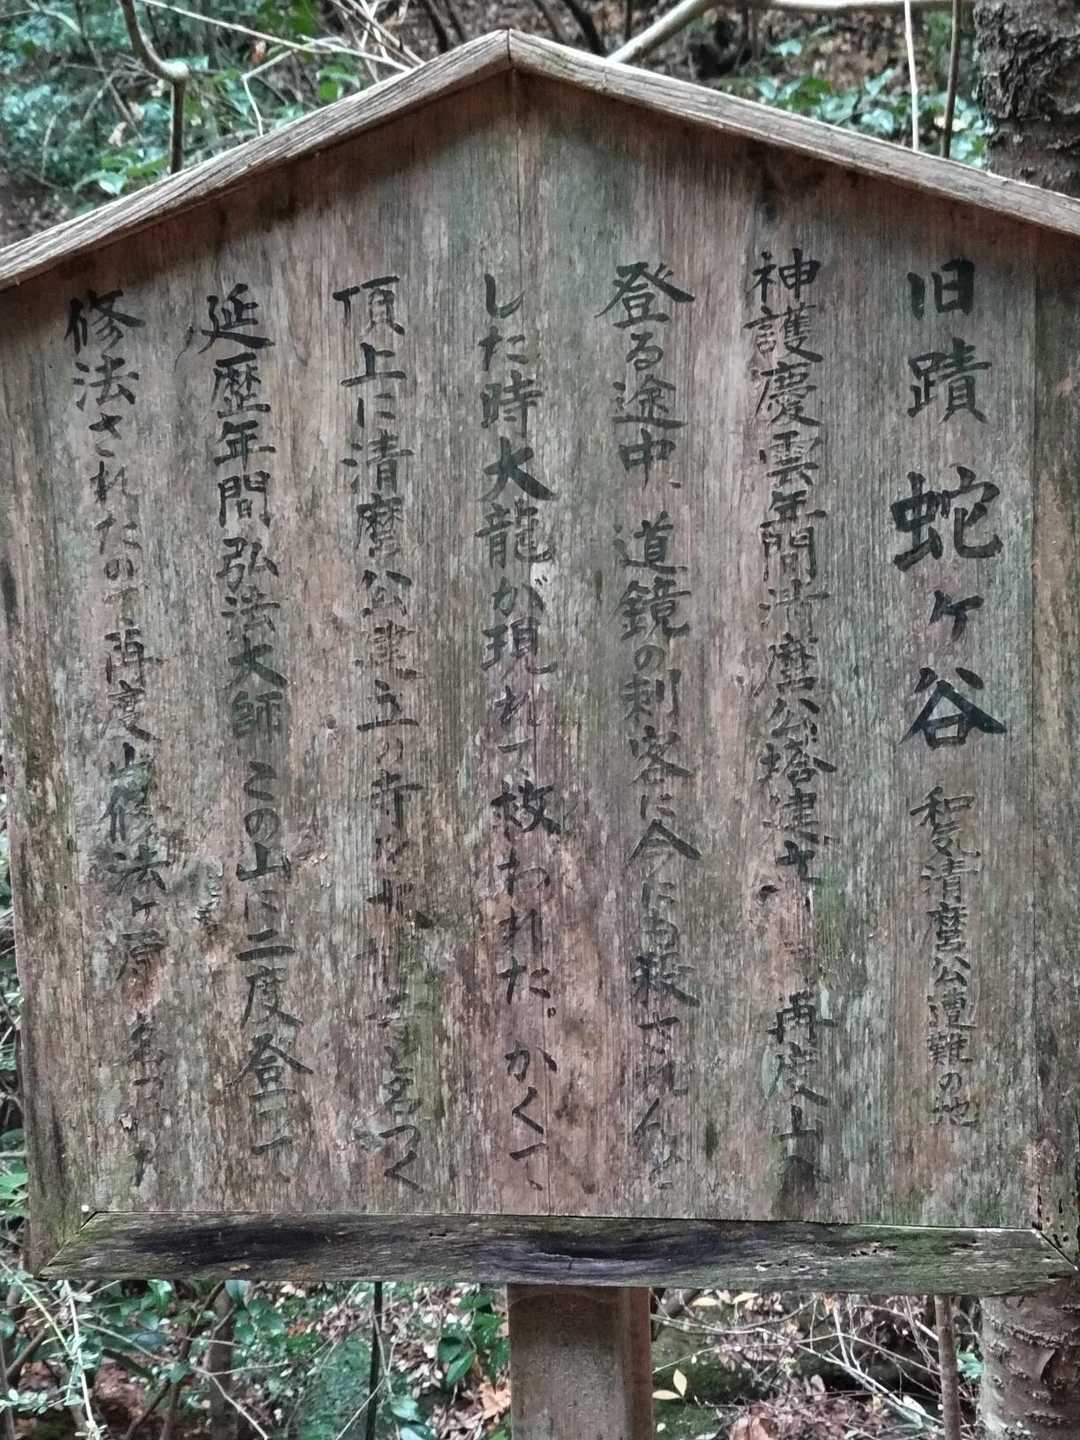 旧蹟 蛇ヶ谷 和気清麿公遭難の地
神護慶雲年間清麿公塔建 再度山へ
登る途中、道鏡の刺客に今にも殺されんと
した時大龍が現れて救われた。かくて
頂上に清麿公建立の寺 と名づく
延歴年間弘法大師この山に二度登って
修法されたので再度山修法ヶ原